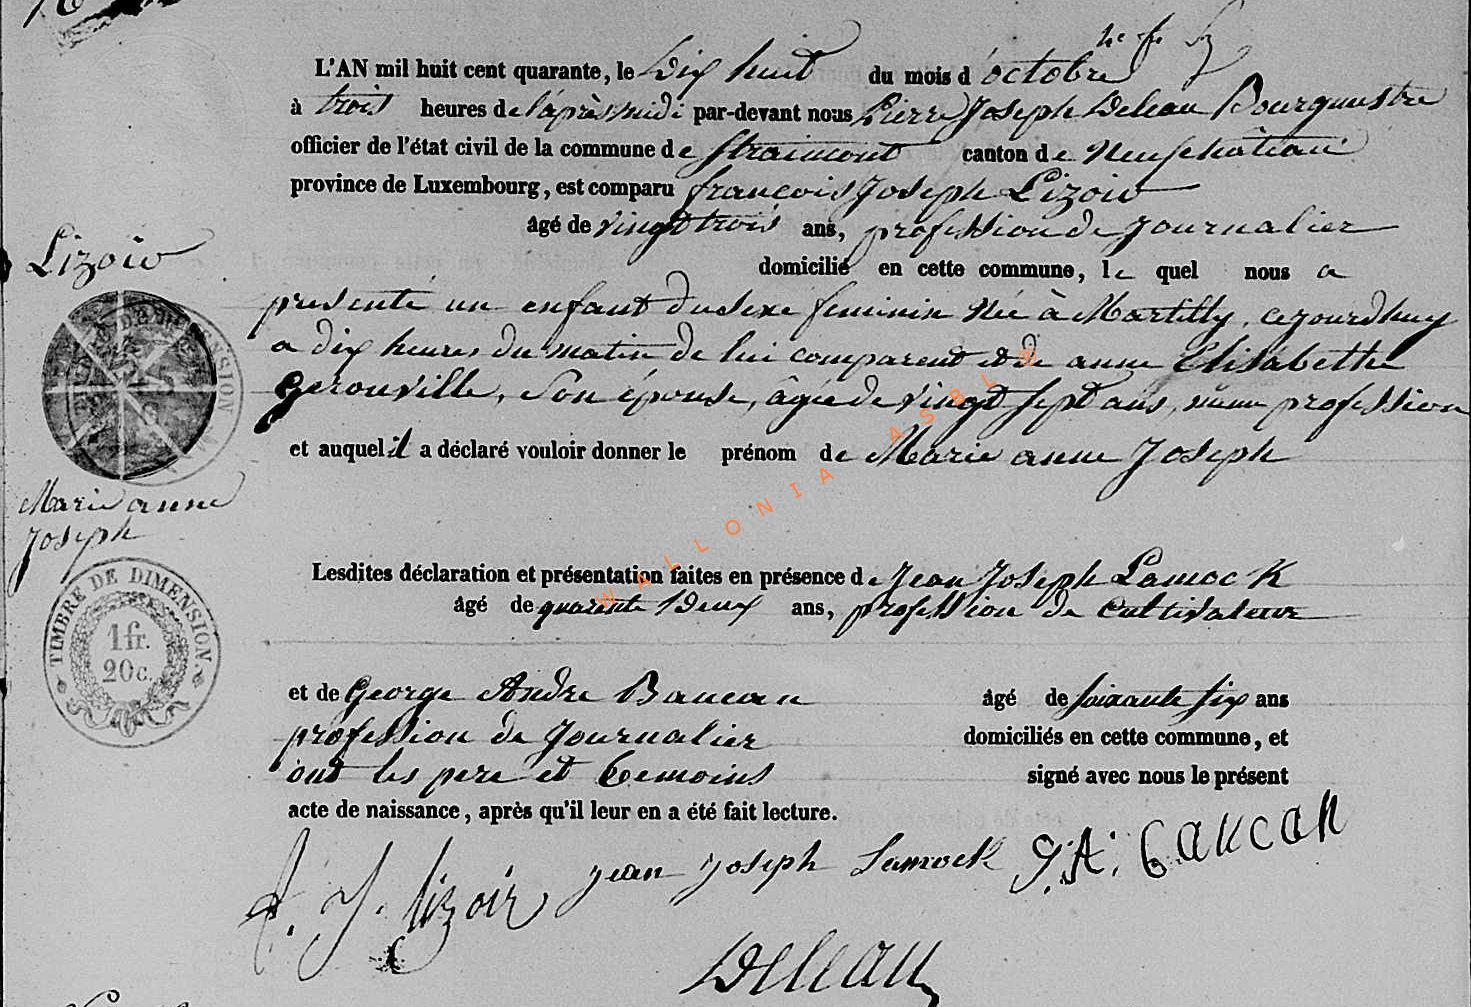 L'AN mil huit cent quarante, le Dix huit du mois d'octobre
à trois heures de l'après midi par-devant nous Pierre Joseph Deleau Bourguestre
officier de l'état civil de la commune de Straimont canton de Neufchâteau
province de Luxembourg, est comparu francois Joseph Lizoir
âgé de vingt trois ans, profession de Journalier
domicilié en cette commune, le quel nous a
Lizoir
presenté un enfant du sexe feminin Née à Martilly, cejourdhuy
a dix heures du matin de lui comparent et de anne Elisabette
Gerouville, Son épouse, âgée de vingt sept ans, même profession
et auquel il a déclaré vouloir donner le prénom de Marie anne Joseph
Marie anne
Joseph
WALLONIA ASBL ©
Lesdites déclaration et présentation faites en présence de Jean Joseph Lamock
âgé de quarente Deux ans, profession de cultivateur
TIMBRE DE DIMENSION.
1 fr.
20 c.
et de George Andre Baucan âgé de soixante six ans
profession de Journalier domiciliés en cette commune, et
ont les pere et temoins signé avec nous le présent
acte de naissance, après qu'il leur en a été fait lecture.
f. J. lizoir Jean Joseph Lamock G. A. baucan
Deleau